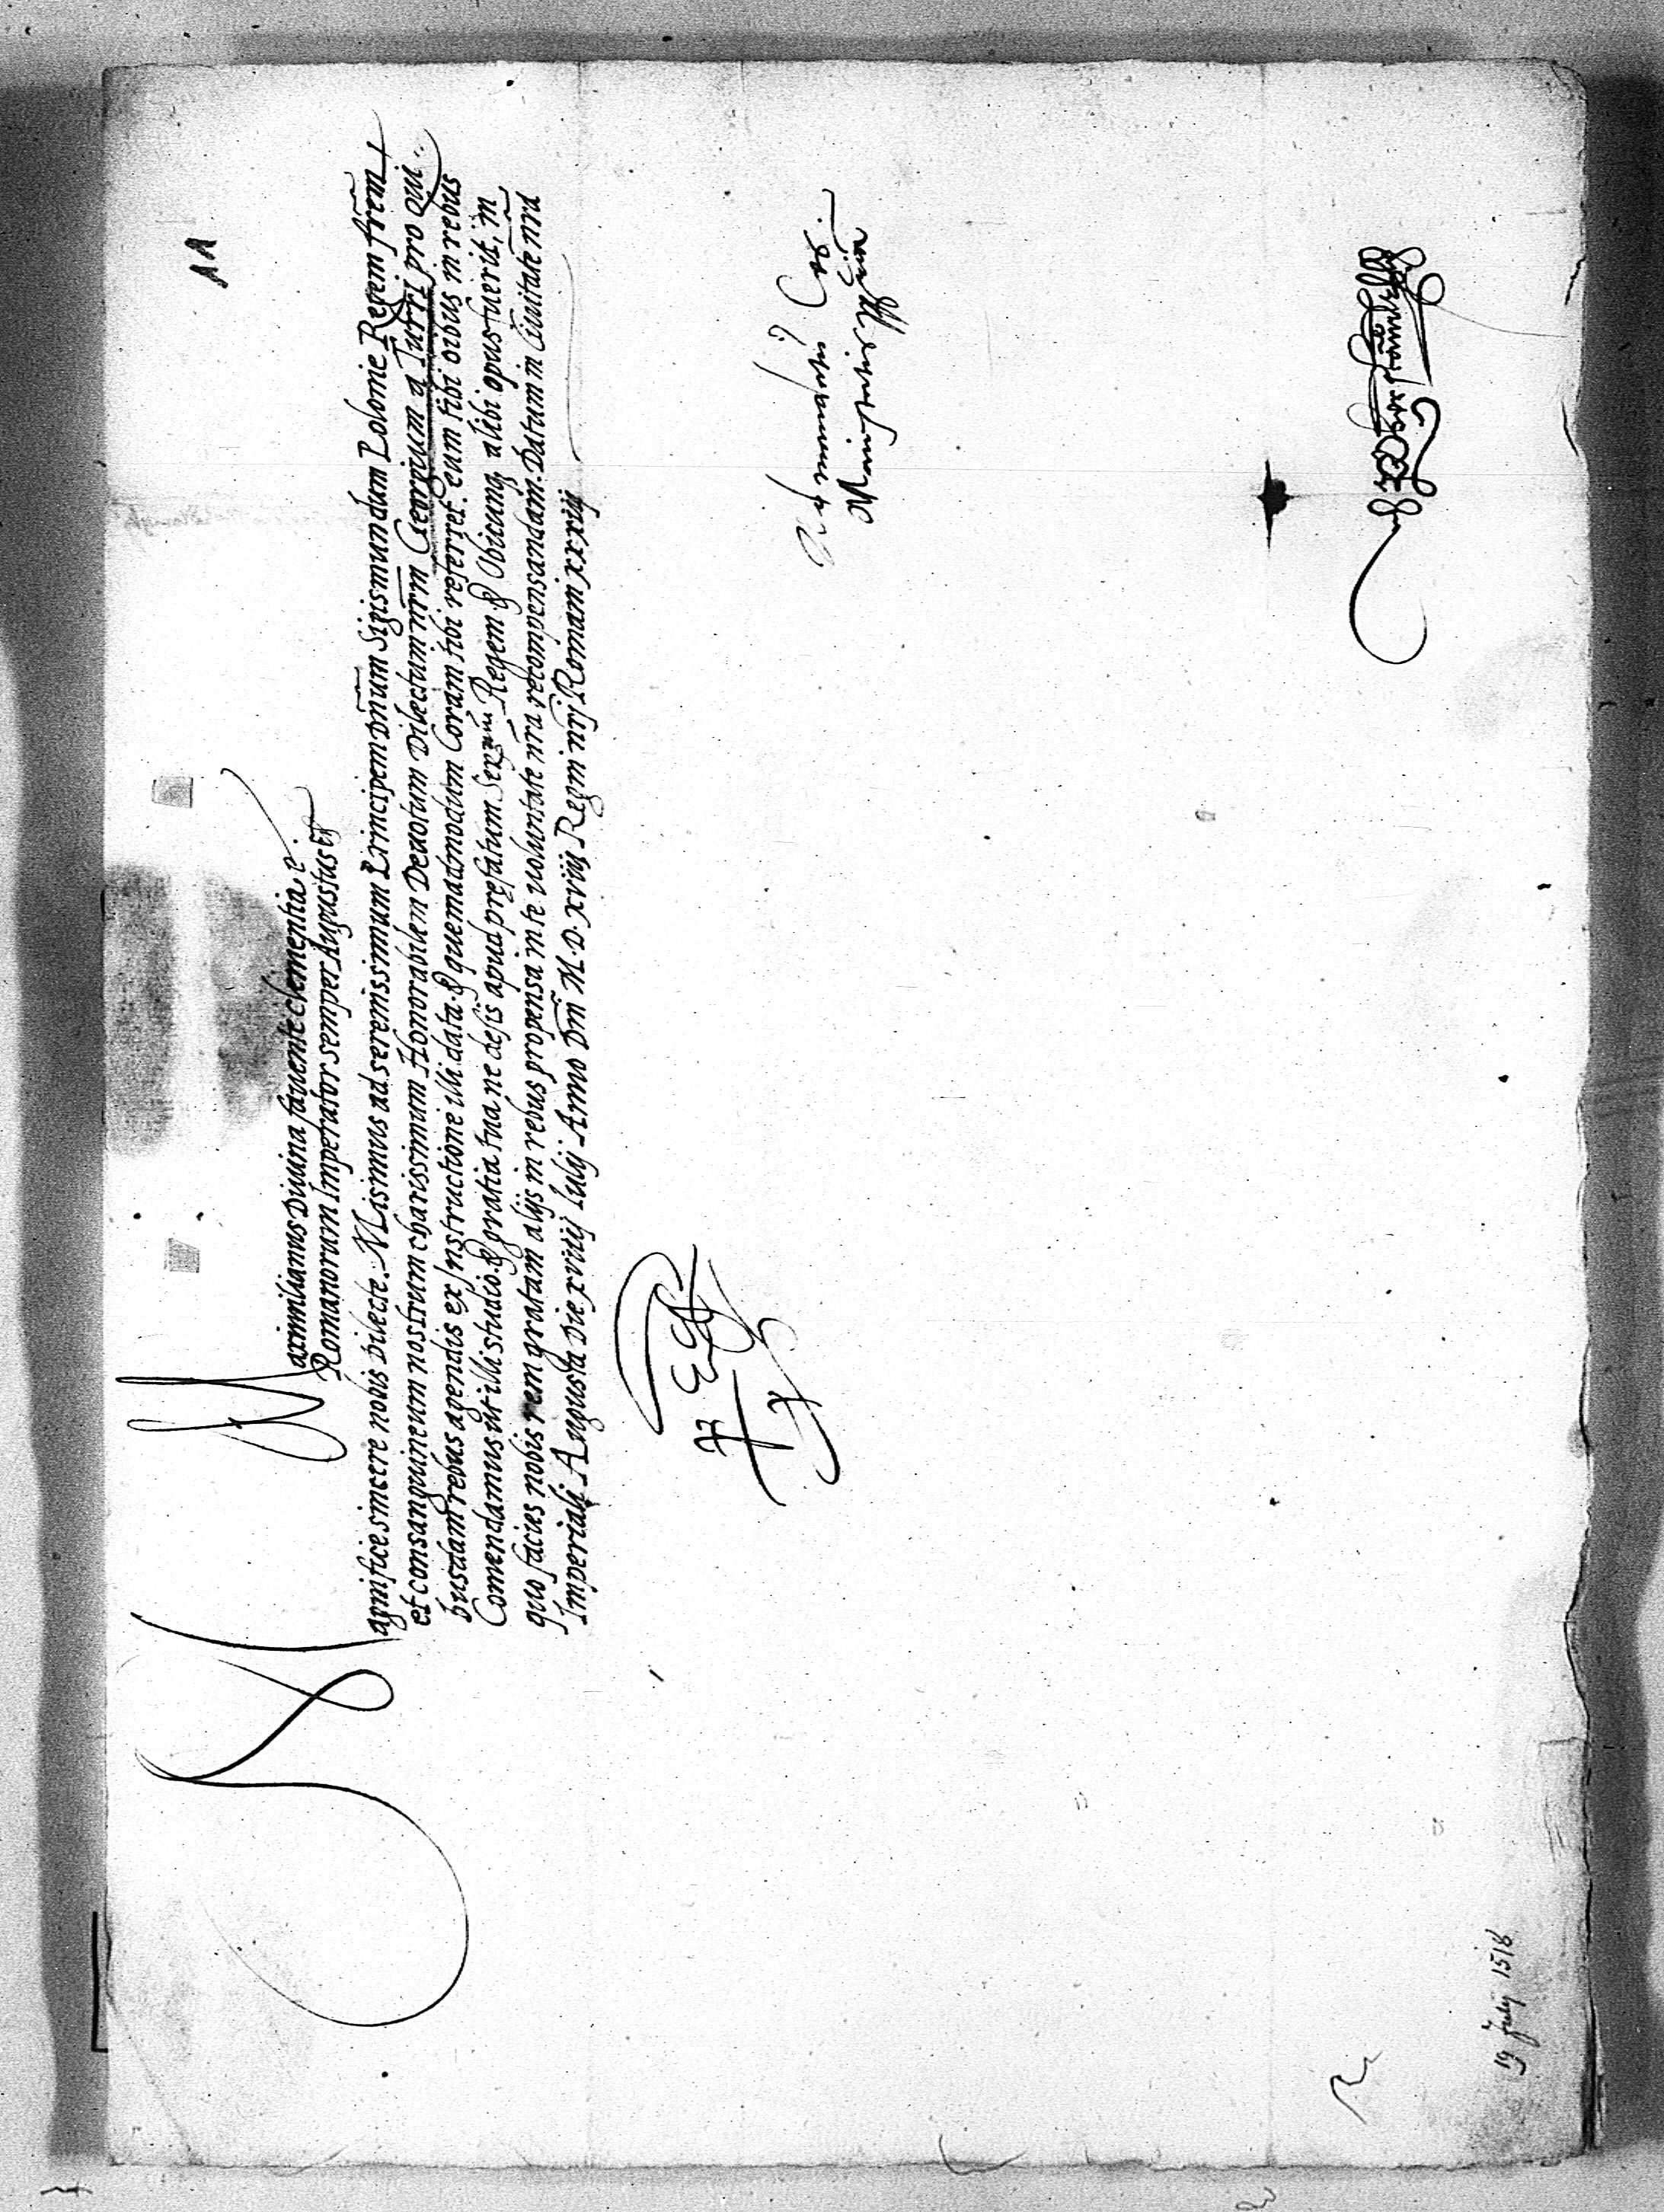 11
Maximilianus Diuina fauente clementia e.
Romanorum Imperator semper Augustus etc
Magnifice sincere nobis Dilecte. Misimus ad serenissimum Principem Dn̄um Sigismundum Polonie Regem frēm
et consanguineum nostrum charissimum Honorabilem Deuotum Dilectum nr̄m Georgium a Turri pro qui-
busdam rebus agendis ex Instructione illi data. & quemadmodum Coram tibi referret. eum tibi oībus in rebus
Comendamus ut illi studio & gratia tua ne desis apud pręfatum Serm̄um Regem & Ubicunq alibi opus fuerit, in
quo facies nobis rem gratam alijs in rebus propensa in te uoluntate nr̄a recompensandam. Datum in Ciuitate nr̄a
Imperiali Augusta Die xviiij Iulij Anno Dn̄i M.D.xviij Regni nrj Romani xxxiij
Ad mandatū Ces.
Maiestatis
19 July 1518